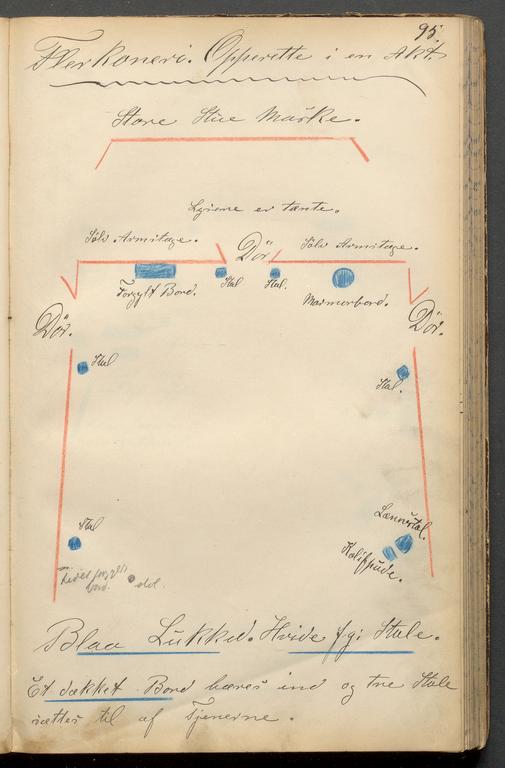 95.
Flerkoneri. Opperette i en Akt.
Store Stue Maske.
Lysene er tænte.
Sølv Armitage. Dör Sølv Armitage.
Forgylt Bord. Stol Stol. Marmorbord.
Dör. Dör.
Stol
Stol.
Stol
Lænnestol.
Bord. stol.
Blaa Lukked. Hvide fg: Stole.
Et dækket Bord bæres ind og tre Stole
sættes til af Tjenerne.